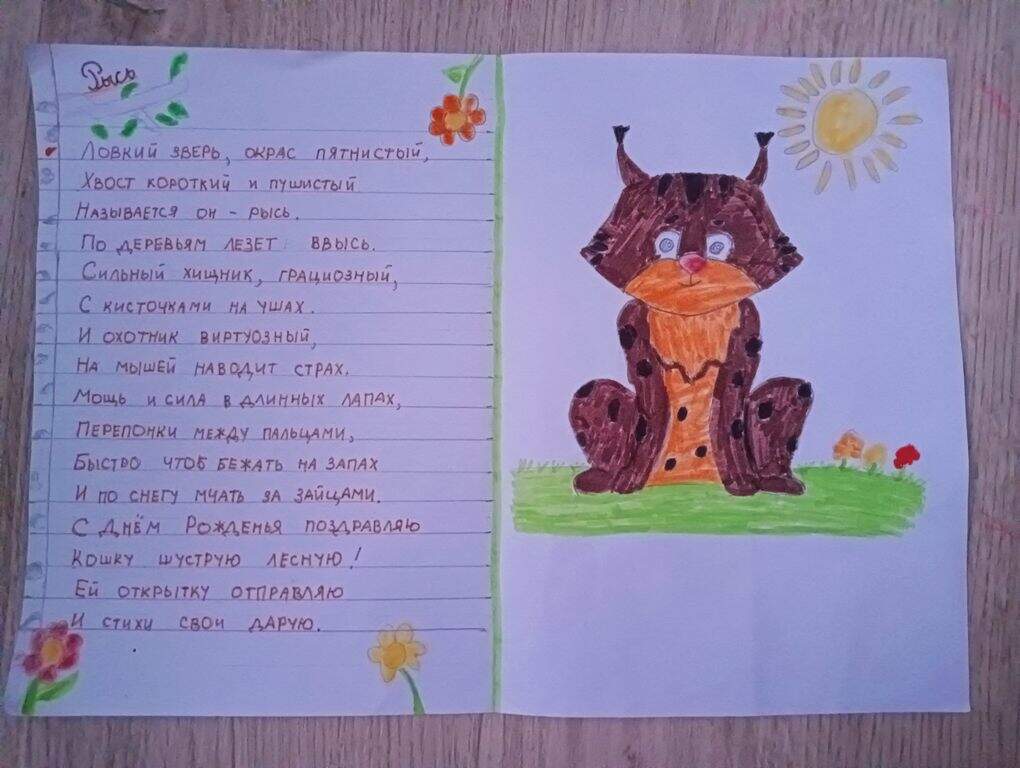 Рысь
Ловкий зверь, окрас пятнистый,
Хвост короткий и пушистый
Называется он - рысь.
По деревьям лезет ввысь.
Сильный хищник, грациозный,
С кисточками на ушах.
И охотник виртуозный,
На мышей наводит страх.
Мощь и сила в длинных лапах,
Перепонки между пальцами,
Быстро чтоб бежать на запах
И по снегу мчать за зайцами.
С Днём Рожденья поздравляю
Кошку шуструю лесную!
Ей открытку отправляю
И стихи свои дарую.